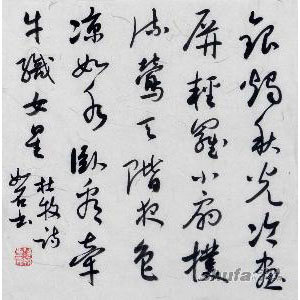 銀燭秋光冷畫
屏輕羅小扇撲
流螢天階夜色
凉如水卧看牽
牛織女星
杜牧詩